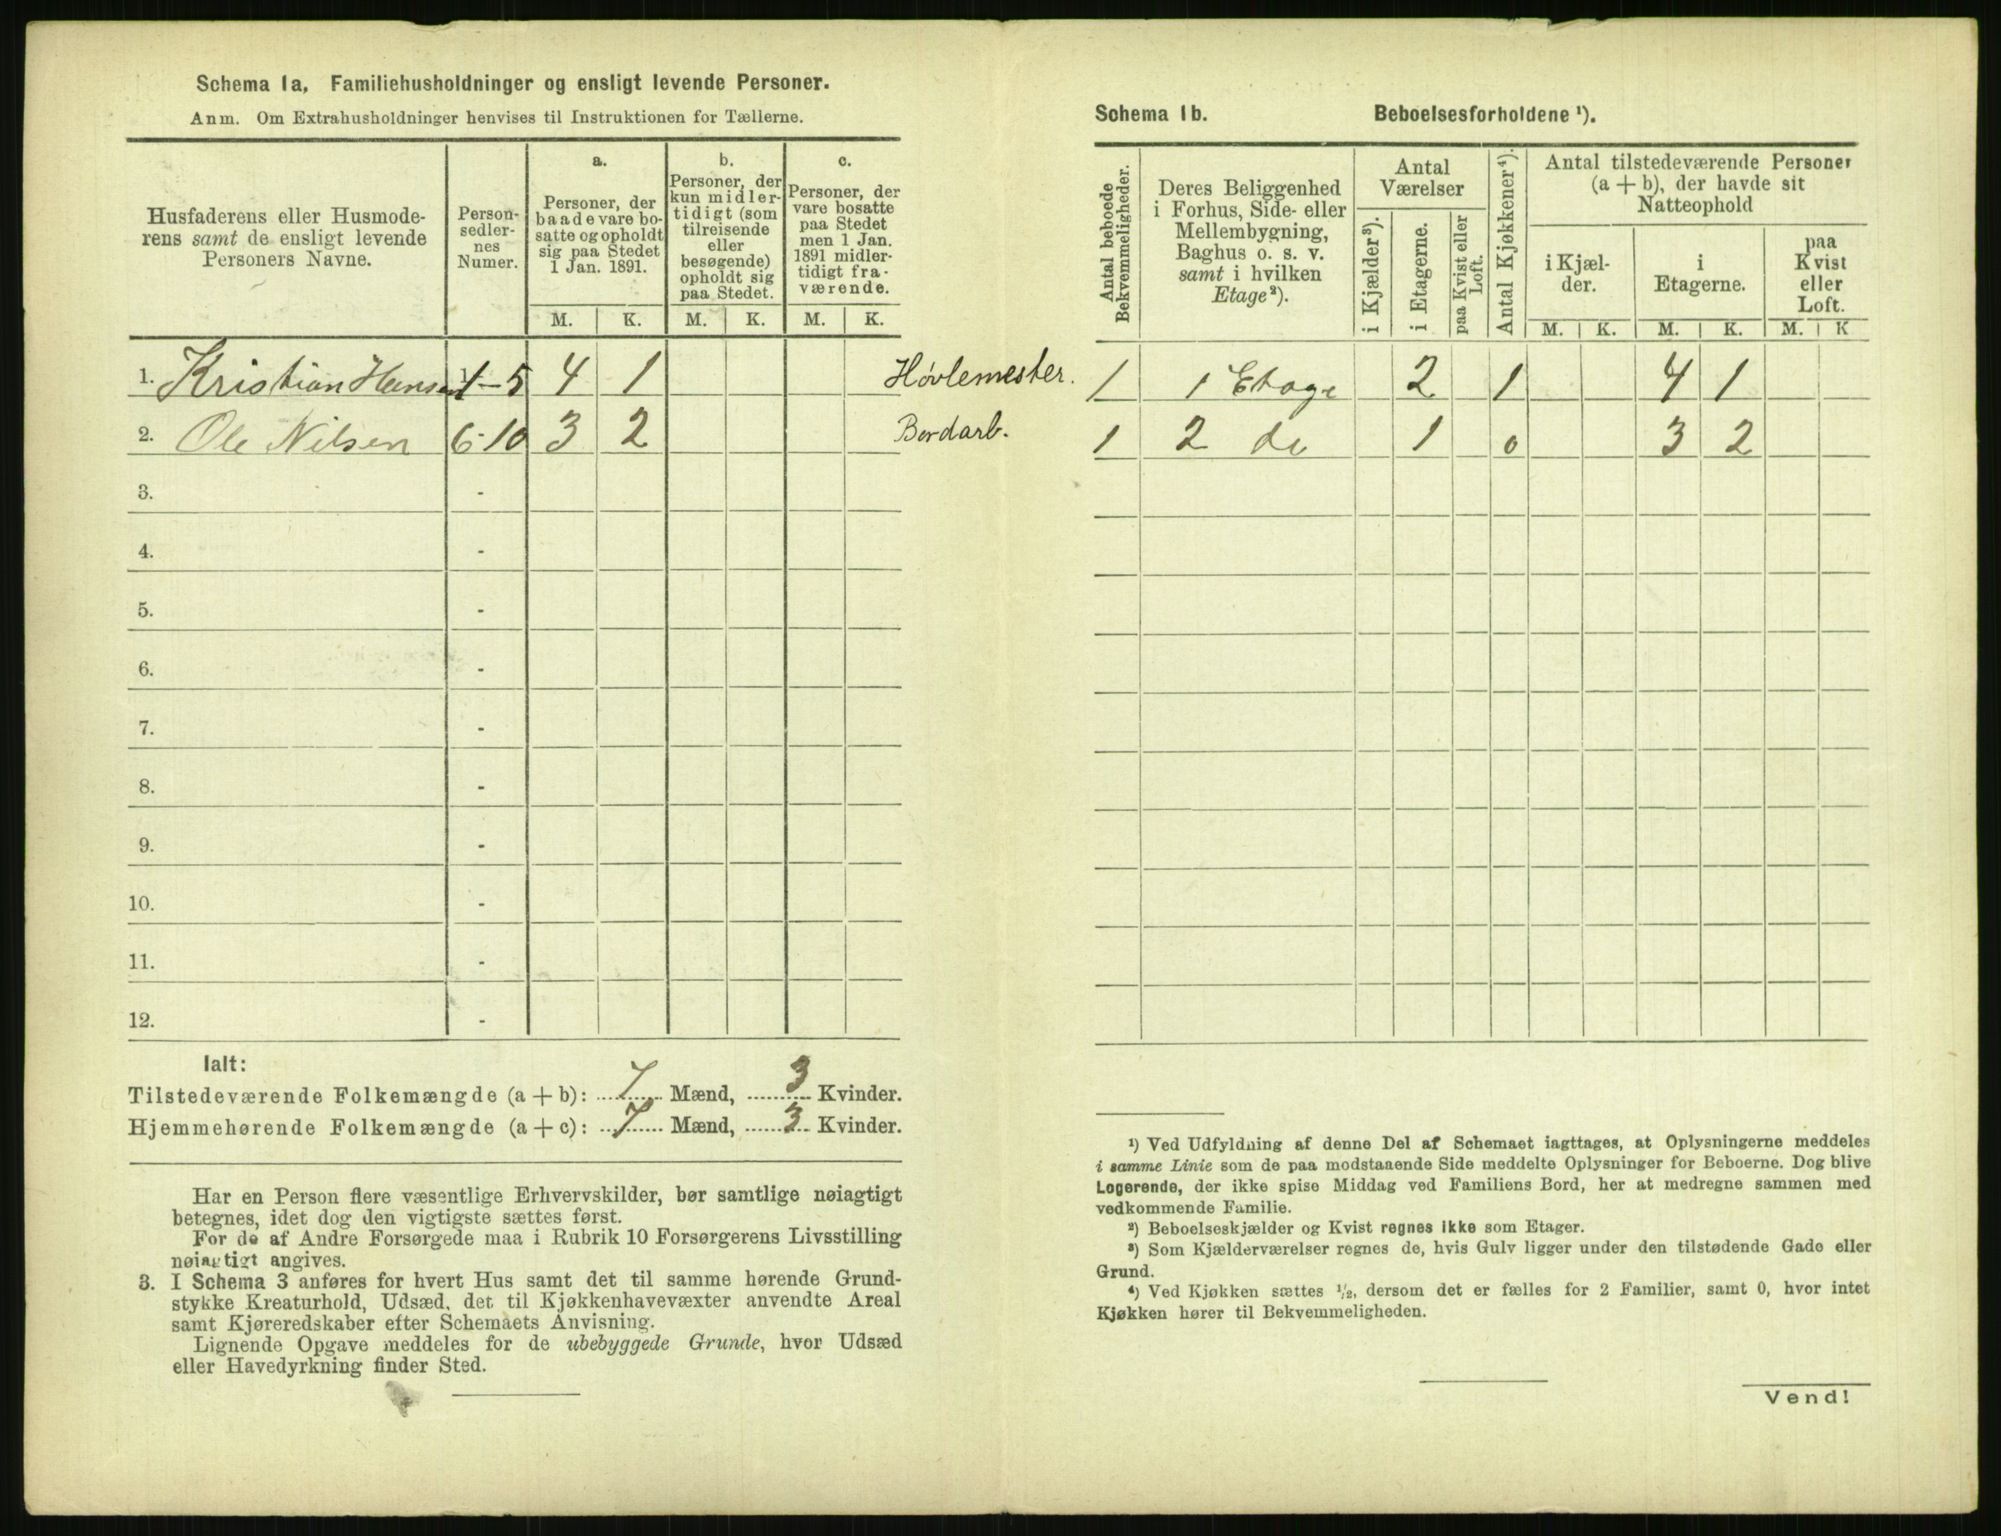 Schema 1a, Familiehusholdninger og ensligt levende Personer.
Anm. Om Extrahusholdninger henvises til Instruktionen for Tællerne.
Husfaderens eller Husmode-
rens samt de ensligt levende
Personers Navne.
Person-
sedler-
nes
Numer.
a.
Personer, der
baade vare bo-
satte og opholdt
sig paa Stedet
1 Jan. 1891.
b.
Personer, der
kun midler-
tidigt (som
tilreisende
eller
besøgende)
opholdt sig
paa Stedet.
c.
Personer, der
vare bosatte
paa Stedet
men 1 Jan.
1891 midler-
tidigt fra-
værende.
M. K. M. K. M. K.
1. Kristian Hansen 1-5 4 1 Høvlemester.
2. Ole Nilsen 6-10 3 2 Bordarb.
3. -
4. -
5. -
6. -
7. -
8. -
9. -
10. -
11. -
12. -
Ialt:
Tilstedeværende Folkemængde (a + b): 7 Mænd, 3 Kvinder.
Hjemmehørende Folkemængde (a + c): 7 Mænd, 3 Kvinder.
Har en Person flere væsentlige Erhvervskilder, bør samtlige nøiagtigt
betegnes, idet dog den vigtigste sættes først.
For de af Andre Forsørgede maa i Rubrik 10 Forsørgerens Livsstilling
nøiagtigt angives.
3. I Schema 3 anføres for hvert Hus samt det til samme hørende Grund-
stykke Kreaturhold, Udsæd, det til Kjøkkenhavevæxter anvendte Areal
samt Kjøreredskaber efter Schemaets Anvisning.
Lignende Opgave meddeles for de ubebyggede Grunde, hvor Udsæd
eller Havedyrkning finder Sted.
Schema 1b. Beboelsesforholdene ¹).
Antal beboede
Bekvemmeligheder.
Deres Beliggenhed
i Forhus, Side- eller
Mellembygning,
Baghus o. s. v.
samt i hvilken
Etage²).
Antal
Værelser
i Kjælder³).
i Etagerne.
paa Kvist eller
Loft.
Antal Kjøkkener⁴).
Antal tilstedeværende Personer
(a + b), der havde sit
Natteophold
i Kjæl-
der.
i
Etagerne.
paa
Kvist
eller
Loft.
M. K. M. K. M. K
1 1 Etage 2 1 4 1
1 2 do 1 0 3 2
¹) Ved Udfyldning af denne Del af Schemaet iagttages, at Oplysningerne meddeles
i samme Linie som de paa modstaaende Side meddelte Oplysninger for Beboerne. Dog blive
Logerende, der ikke spise Middag ved Familiens Bord, her at medregne sammen med
vedkommende Familie.
²) Beboelseskjælder og Kvist regnes ikke som Etager.
³) Som Kjælderværelser regnes de, hvis Gulv ligger under den tilstødende Gade eller
Grund.
⁴) Ved Kjøkken sættes ½, dersom det er fælles for 2 Familier, samt 0, hvor intet
Kjøkken hører til Bekvemmeligheden.
Vend!